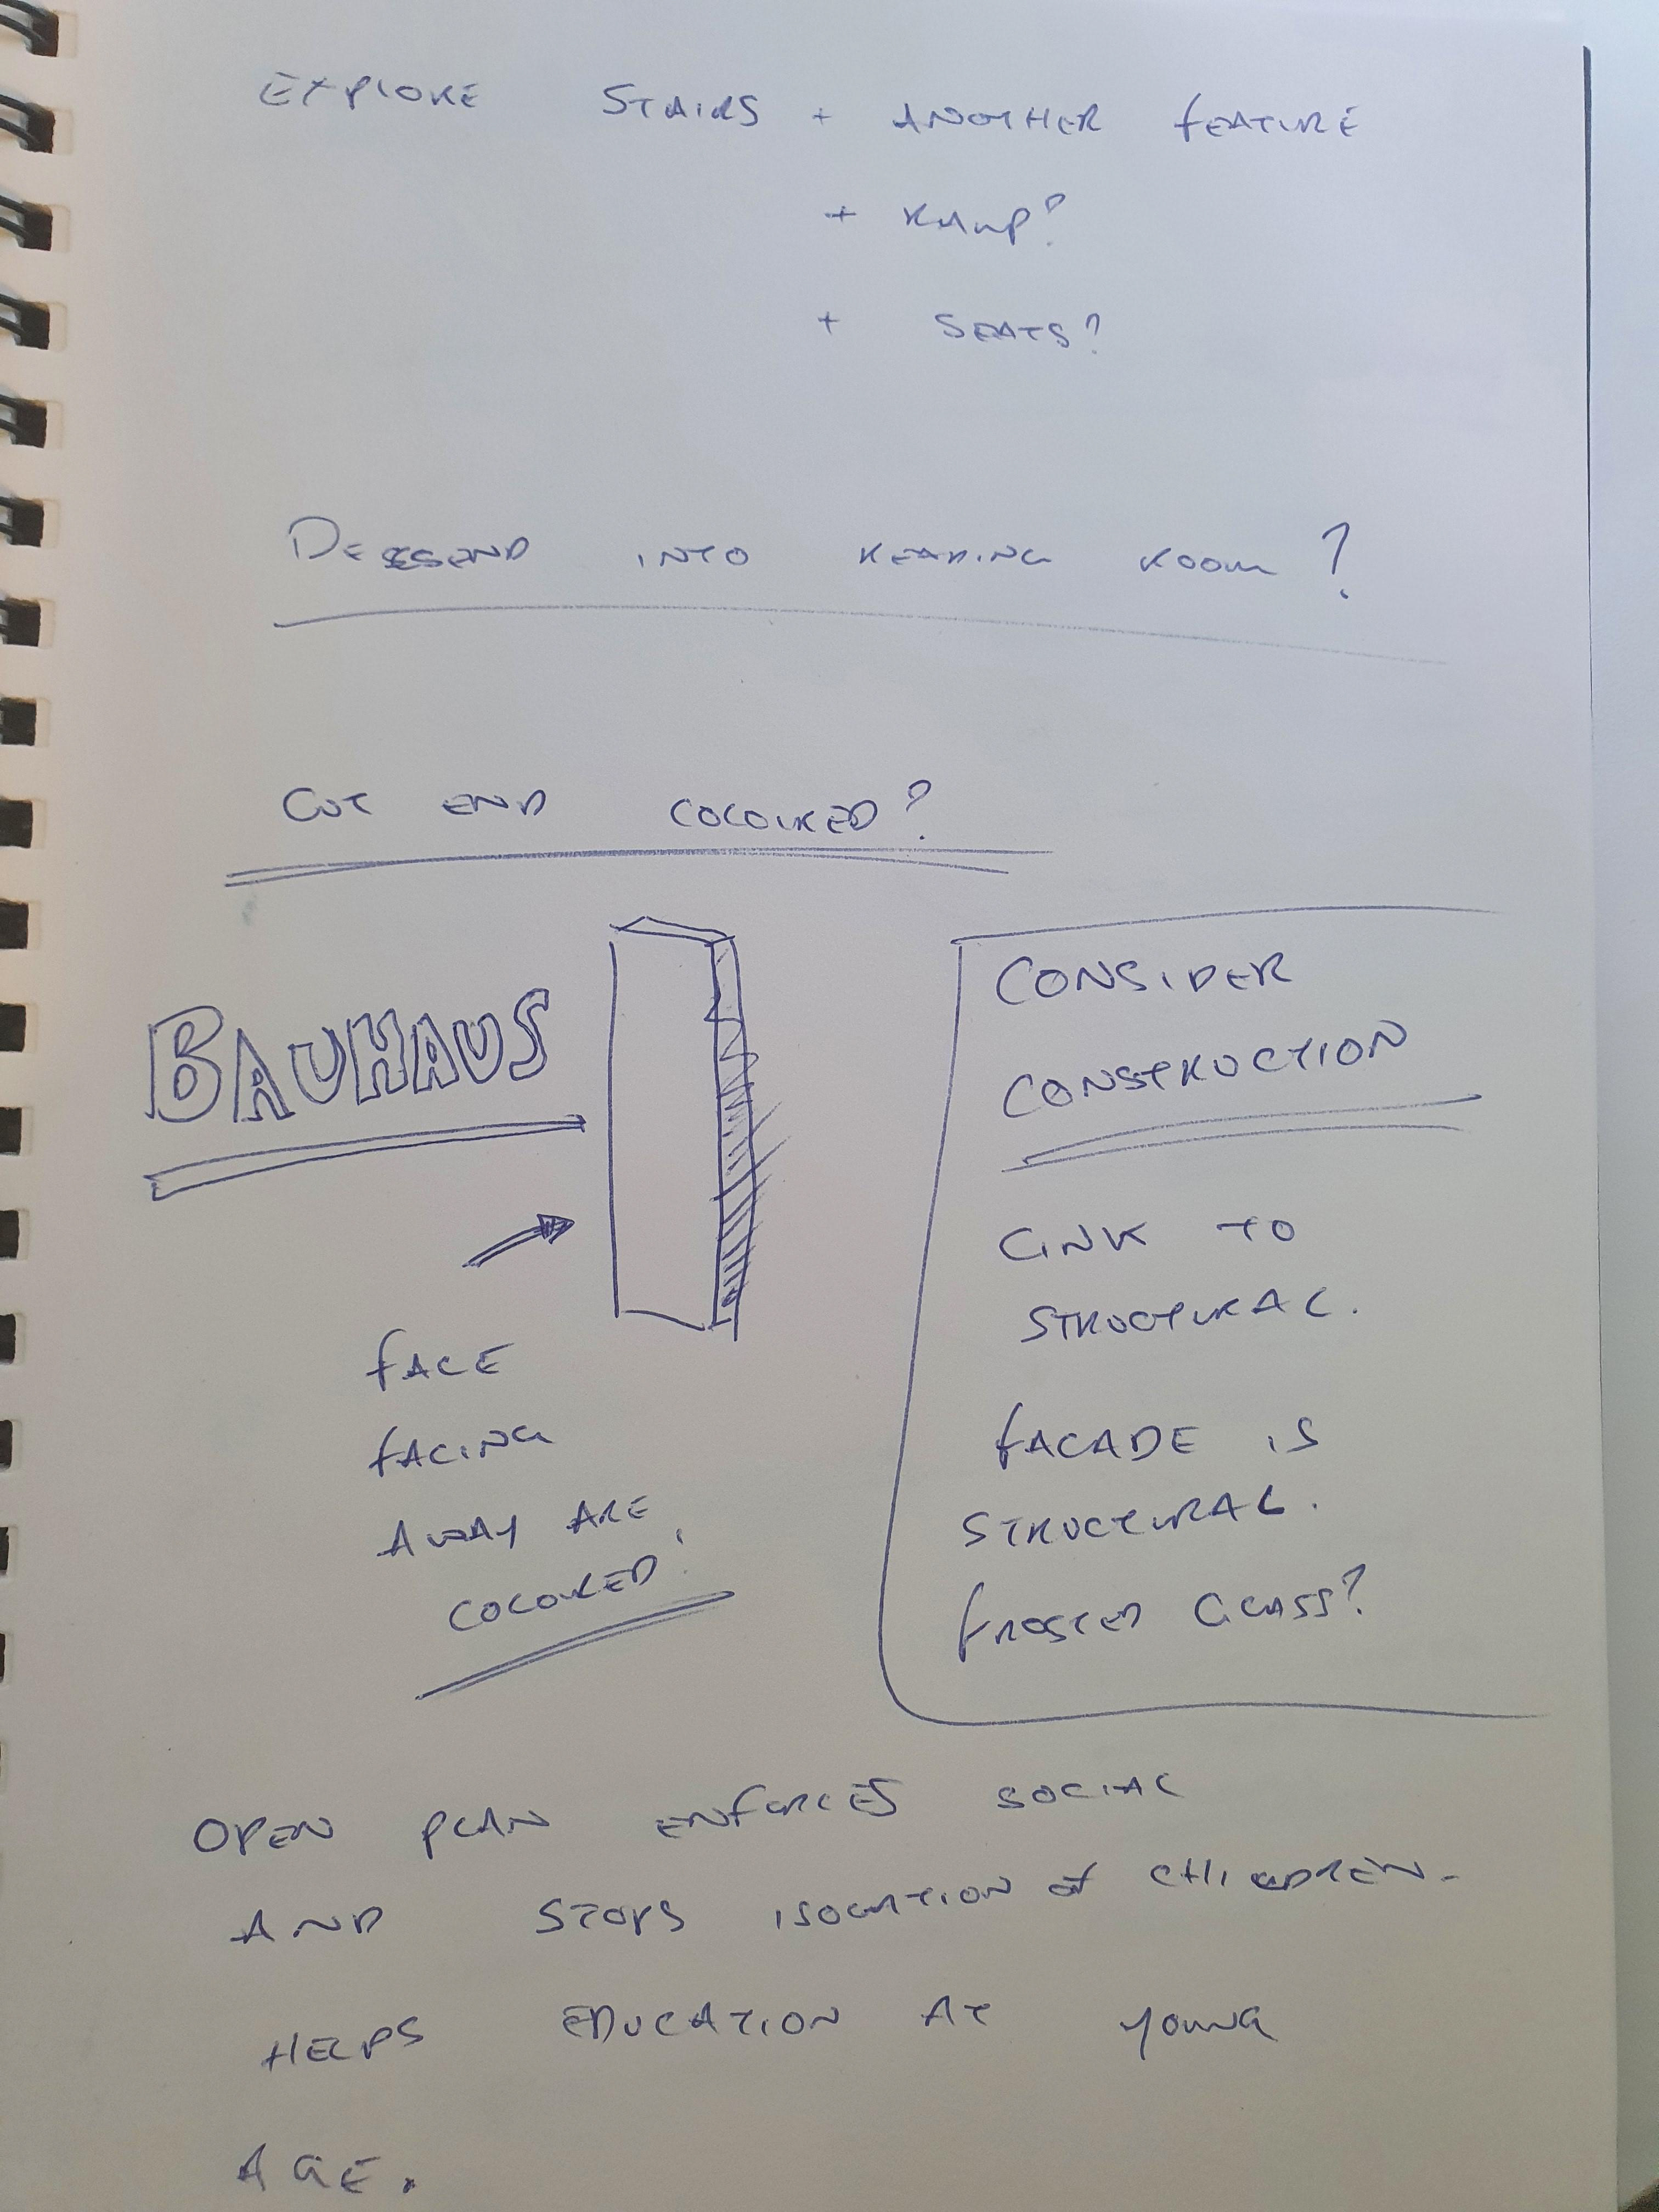 EXPLORE STAIRS + ANOTHER FEATURE
+ RAMP?
+ SEATS?
DESSEND INTO READING ROOM?
CUT END COLOURED?
BAUHAUS
FACE
FACING
AWAY ARE
COLOURED!
CONSIDER
CONSTRUCTION
LINK TO
STRUCTURAL.
FACADE IS
STRUCTURAL.
FROSTED GLASS?
OPEN PLAN ENFORCES SOCIAL
AND STOPS ISOLATION OF CHILDREN.
HELPS EDUCATION AT YOUNG
AGE.